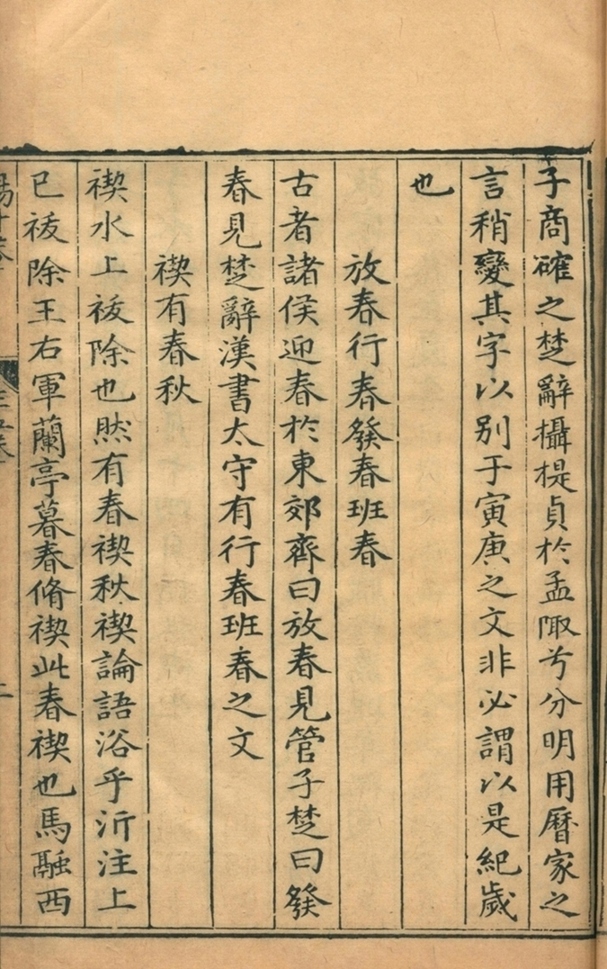 子商確之楚辭攝提貞於孟陬兮分明用曆家之
言稍變其字以別于寅庚之文非必謂以是紀歲
也
放春行春發春班春
古者諸侯迎春於東郊齊曰放春見管子楚曰發
春見楚辭漢書太守有行春班春之文
禊有春秋
禊水上祓除也然有春禊秋禊論語浴乎沂注上
巳祓除王右軍蘭亭暮春脩禊此春禊也馬融西